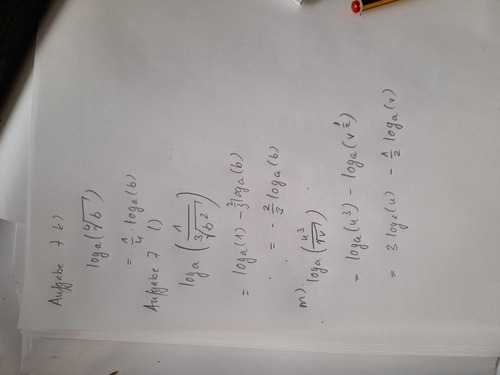 Aufgabe 7 k)
logₐ(⁴√b)
= 1/4 · logₐ(b)
Aufgabe 7 l)
logₐ(1/³√b²)
= logₐ(1) - 2/3 logₐ(b)
= - 2/3 logₐ(b)
m) logₐ(u³/√v)
= logₐ(u³) - logₐ(v^1/2)
= 3 logₐ(u) - 1/2 logₐ(v)